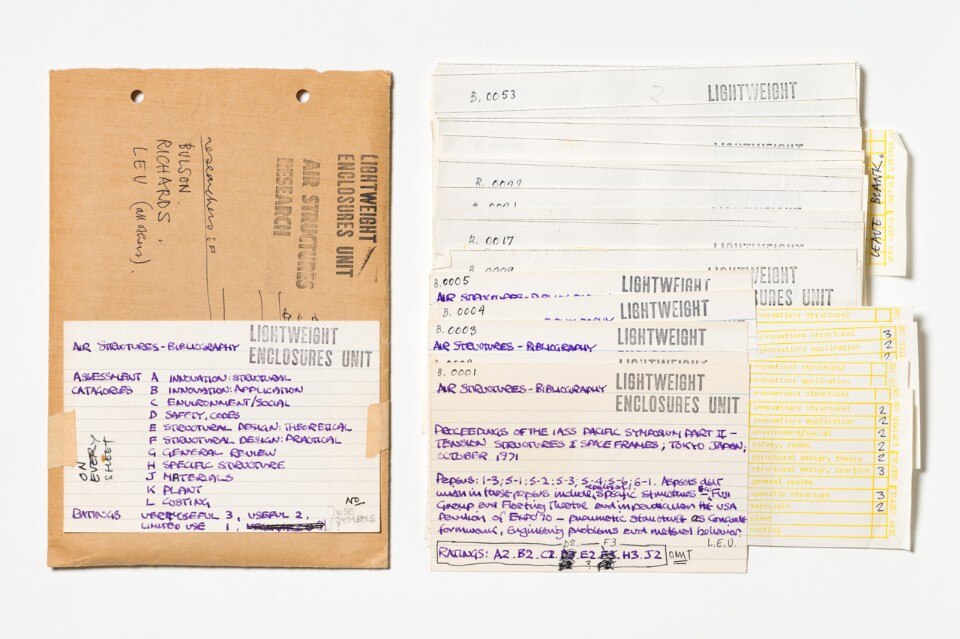 LIGHTWEIGHT
ENCLOSURES UNIT
AIR STRUCTURES
RESEARCH
researchers :-
BULSON.
RICHARDS.
LEU (all others).
LIGHTWEIGHT
ENCLOSURES UNIT
AIR STRUCTURES - BIBLIOGRAPHY
ASSESSMENT A INNOVATION: STRUCTURAL
CATAGORIES B INNOVATION: APPLICATION
C ENVIRONMENT/SOCIAL
D SAFTY, CODES
E STRUCTURAL DESIGN: THEORETICAL
F STRUCTURAL DESIGN: PRACTICAL
G GENERAL REVIEW
H SPECIFIC STRUCTURE
J MATERIALS
K PLANT
L COSTING
RATINGS USEFUL 2,
LIMITED USE 1,
NO
USE SYMBOLS
ON
EVERY
SHEET
B.0053
2
LIGHTWEIGHT
LIGHTWEIGHT
B.0017
B.0005
LIGHTWEIGHT
AIR STRUCTURES - BIBLIOGRAPHY
B.0004
LIGHTWEIGHT
B.0003
LIGHTWEIGHT
AIR STRUCTURES - BIBLIOGRAPHY
B.0001
LIGHTWEIGHT
ENCLOSURES UNIT
AIR STRUCTURES - BIBLIOGRAPHY
PROCEEDINGS OF THE IASS PACIFIC SYMPOSIUM PART II -
TENSION STRUCTURES & SPACE FRAMES; TOKYO JAPAN;
OCTOBER 1971
Papers: 1-3, 5-1, 5-2, 5-3, 5-4, 5-6, 6-1. Aspects dealt
with in these papers include, specific structures - Fuji
Group and Floating Theatre and in particular the USA
Pavilion of Expo 70 - pneumatic structures as concrete
formwork, Engineering problems and material behavior.
L.E.U.
D2. F3
RATINGS: A2. B2. C2. E2. H3. J2
OMIT
LEAVE BLANK.
innovation: structural
innovation: structural 3
innovation: application 2
innovation: structural
innovation: application
innovation: structural 2
innovation: application 2
environment/social 2
safety, codes 2
structural design, theory 2
structural design, practice 3
general review
specific structure 3
materials 2
plant
costing